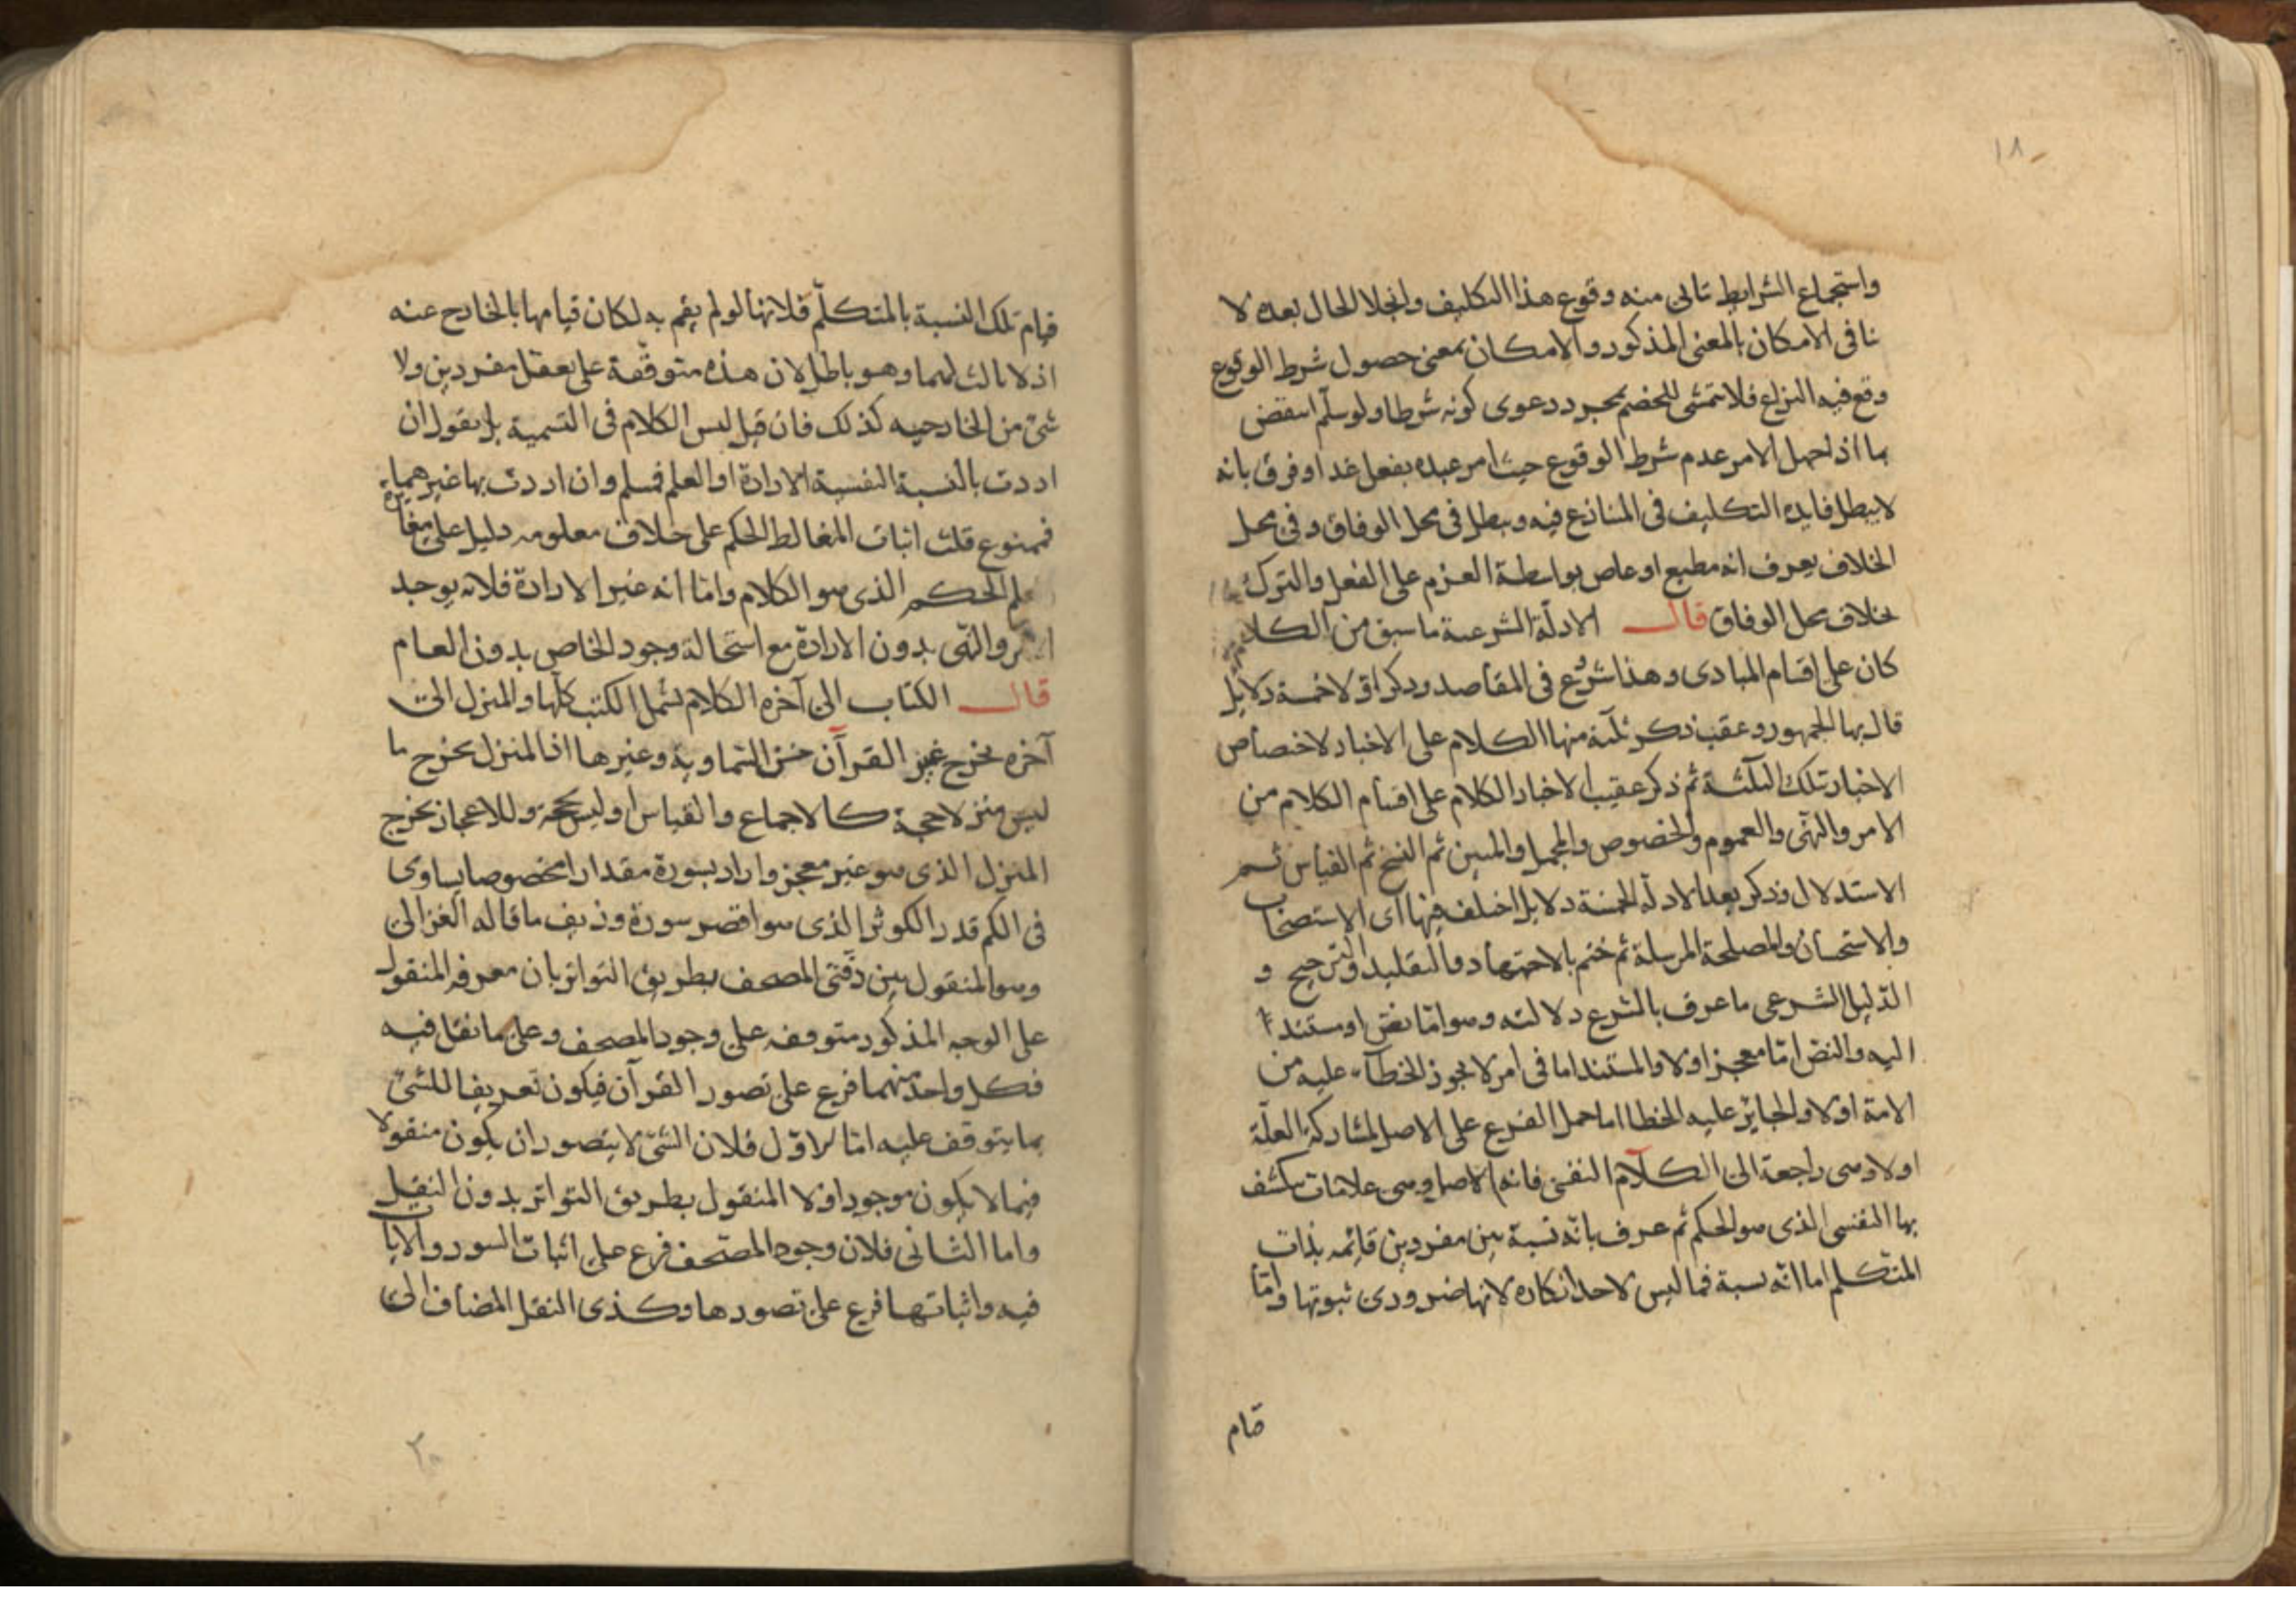 ١٨
واستجماع الشرايط تاتى منه وقوع هذا التكليف وانجلا الحال بعده لا
نافى الامكان بالمعنى المذكور والامكان بمعنى حصول شرط الوقوع
وقع فيه النزاع فلا يتمشى للخصم بمجرد دعوى كونه شرطا ولو سلّم انتقض
بما اذا جهل الامر عدم شرط الوقوع حيث امر عبده بفعل غدا وفرق بانه
لا يبطل فايدة التكليف فى المتنازع فيه ويبطل فى محل الوفاق وفى محل
الخلاف يعرف انه مطيع او عاص بواسطة العزم على الفعل والترك
بخلاف محل الوفاق قال الادلّة الشرعية ما سبق من الكلام
كان على اقسام المبادى وهذا شروع فى المقاصد وذكر اولا خمسة دلايل
قال بها الجمهور وعقب ذكر ثلثة منها الكلام على الاخبار لاختصاص
الاخبار تلك الثلثة ثم ذكر عقيب الاخبار الكلام على اقسام الكلام من
الامر والنهى والعموم والخصوص والمجمل والمبين ثم النسخ ثم القياس ثم
الاستدلال وذكر بعد الادلة الخمسة دلايل اختلف فيها اى الاستصحاب
والاستحسان والمصلحة المرسلة ثم ختم بالاجتهاد والتقليد والترجيح و
الدّليل الشرعى ما عرف بالشرع دلالته وهو امّا نصّ او مستند
اليه والنصّ امّا معجز اولا والمستند اما فى امر لا يجوز الخطاء عليه من
الامة اولا والجايز عليه الخطا اما حمل الفرع على الاصل لمشاركة العلّة
اولا وهى راجعة الى الكلام النفسى فانه الاصل وهى علامات يكشف
بها النفسى الذى هو الحكم ثم عرف بانّه نسبة بين مفردين قائمه بذات
المتكلم اما انّه نسبة فما ليس لاحد انكاره لانها ضرورى ثبوتها وامّا
قيام
قيام تلك النسبة بالمتكلّم فلانها لو لم يقم به لكان قيامها بالخارج عنه
اذ لا ثالث لهما وهو باطل لان هذه متوقّفة على تعقل مفردين ولا
شئ من الخارجيه كذلك فان قيل ليس الكلام فى التسمية بل يقول ان
اردت بالنسبة النفسية الارادة او العلم فمسلم وان اردت بها غيرهما
فممنوع قلت اثبات المغالط الحكم على خلاف معلومه دليل على مغايرة
علم الحكم الذى هو الكلام وامّا انه غير الارادة فلانه يوجد
الامر والنّهى بدون الارادة مع استحالة وجود الخاص بدون العام
قال الكتاب الى آخره الكلام يشمل الكتب كلّها والمنزل الى
آخره يخرج غير القرآن من السّماوية وغيرها اذ المنزل يخرج ما
ليس منزلا حجة كالاجماع والقياس او ليس بحجة وللاعجاز يخرج
المنزل الذى هو غير معجز واراد بسورة مقدارا مخصوصا يساوى
فى الكم قدر الكوثر الذى هو اقصر سورة وزيف ما قاله الغزالى
وهو المنقول بين دفّتى المصحف بطريق التواتر بان معرفة المنقول
على الوجه المذكور متوقفه على وجود المصحف وعلى ما نقل فيه
فكل واحد منهما فرع على تصور القرآن فيكون تعريفا للشئ
بما يتوقف عليه امّا الاوّل فلان الشئ لا يتصور ان يكون منقولا
فيما لا يكون موجودا ولا المنقول بطريق التواتر بدون النقل
واما الثانى فلان وجود المصحف فرع على اثبات السور والايات
فيه واثباتها فرع على تصورها وكذى النقل المضاف الى